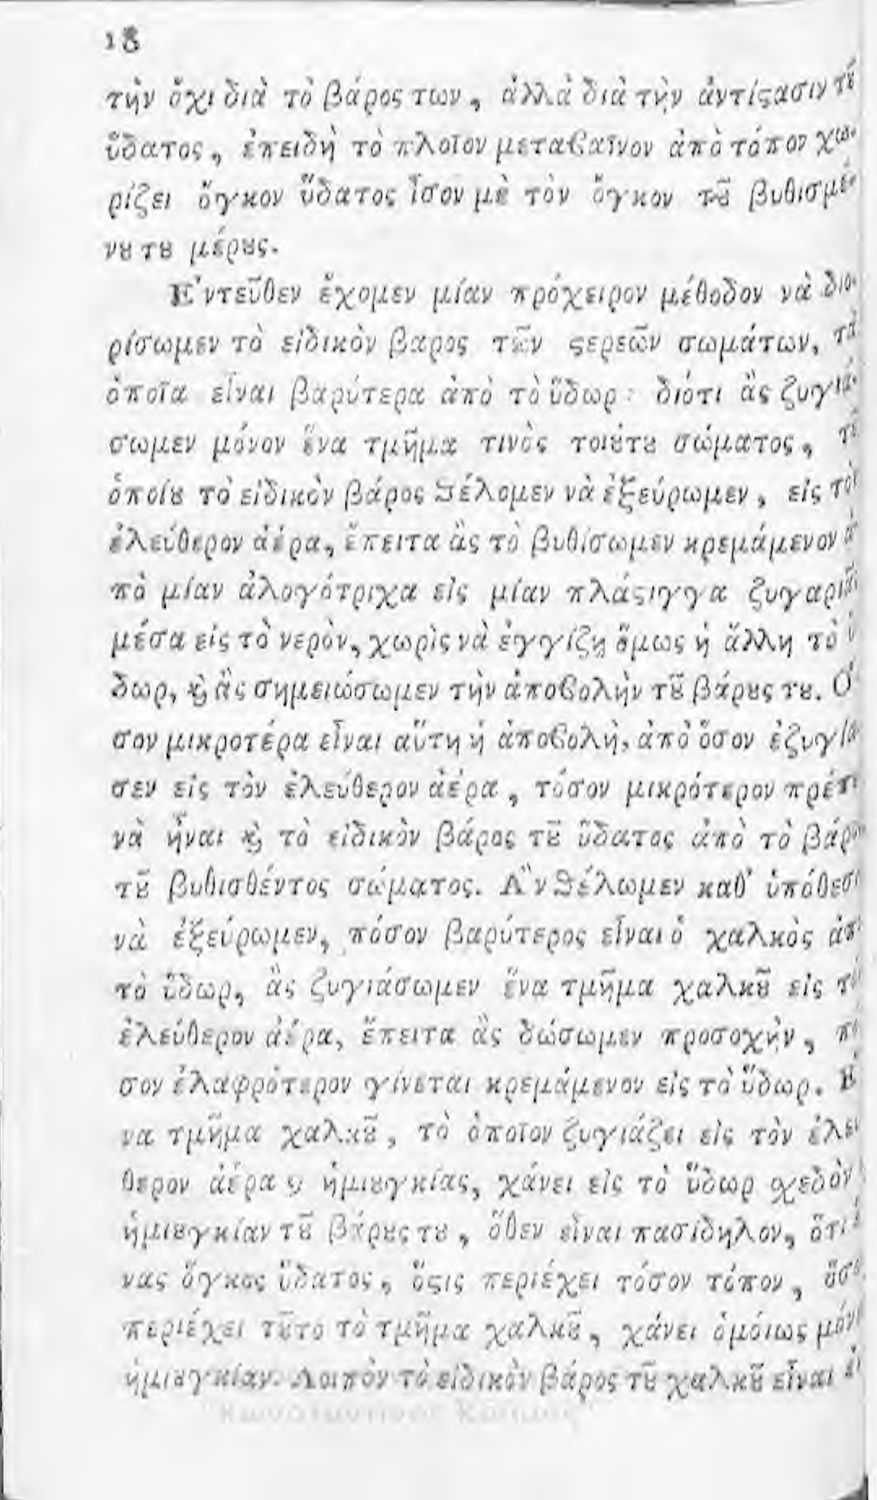 18
τὴν ὄχι διὰ τὸ βάρος των, ἀλλὰ διὰ τὴν ἀντίϛασιν τȣ͂
ὕδατος, ἐπειδὴ τὸ πλοῖον μεταϐαῖνον ἀπὸ τόπον χω-
ρίζει ὄγκον ὕδατος ἶσον μὲ τὸν ὄγκον τȣ͂ βυθισμέ-
νȣ τȣ μέρȣς.
Ἐντεῦθεν ἔχομεν μίαν πρόχειρον μέθοδον νὰ διο-
ρίσωμεν τὸ εἰδικὸν βαρος τῶν ϛερεῶν σωμάτων, τὰ
ὁποῖα εἶναι βαρύτερα ἀπὸ τὸ ὕδωρ· διότι ἂς ζυγιά-
σωμεν μόνον ἕνα τμῆμα τινὸς τοιȣ́τȣ σώματος, τȣ͂
ὁποίȣ τὸ εἰδικὸν βάρος θέλομεν νὰ ἐξεύρωμεν, εἰς τὸν
ἐλεύθερον ἀέρα, ἔπειτα ἂς τὸ βυθίσωμεν κρεμάμενον ἀ
πὸ μίαν ἀλογότριχα εἰς μίαν πλάϛιγγα
μέσα εἰς τὸ νερὸν, χωρὶς νὰ ἐγγίζῃ ὅμως ἡ ἄλλη τὸ ὕ
δωρ, ϗ̀ ἂς σημειώσωμεν τὴν ἀποϐολὴν τȣ͂ βάρȣς τȣ. Ὅ
σον μικροτέρα εἶναι αὕτη ἡ ἀποϐολὴ, ἀπὸ ὅσον ἐζυγία
σεν εἰς τὸν ἐλεύθερον ἀέρα, τόσον μικρότερον πρέπει
νὰ ἦναι ϗ̀ τὸ εἰδικὸν βάρος τȣ͂ ὕδατος ἀπὸ τὸ βάρος
τȣ͂ βυθισθέντος σώματος. Ἂν θέλωμεν καθ' ὑπόθεσι
νὰ ἐξεύρωμεν, πόσον βαρύτερος εἶναι ὁ χαλκὸς ἀπὸ
τὸ ὕδωρ, ἂς ζυγιάσωμεν ἕνα τμῆμα χαλκȣ͂ εἰς τὸν
ἐλεύθερον ἀέρα, ἔπειτα ἂς δώσωμεν προσοχὴν, πό
σον ἐλαφρότερον γίνεται κρεμάμενον εἰς τὸ ὕδωρ. Ἕ
να τμῆμα χαλκȣ͂, τὸ ὁποῖον ζυγιάζει εἰς τὸν ἐλεύ
θερον ἀέρα 9 ἡμιȣγκίας, χάνει εἰς τὸ ὕδωρ σχεδὸν
ἡμιȣγκίαν τȣ͂ βάρȣς τȣ, ὅθεν εἶναι πασίδηλον, ὅτι ἕ
νας ὄγκος ὕδατος, ὅϛις περιέχει τόσον τόπον, ὅσον
περιέχει τȣ͂το τὸ τμῆμα χαλκȣ͂, χάνει ὁμοίως μόνον
ἡμιȣγκίαν. Λοιπὸν τὸ εἰδικὸν βάρος τȣ͂ χαλκȣ͂ εἶναι